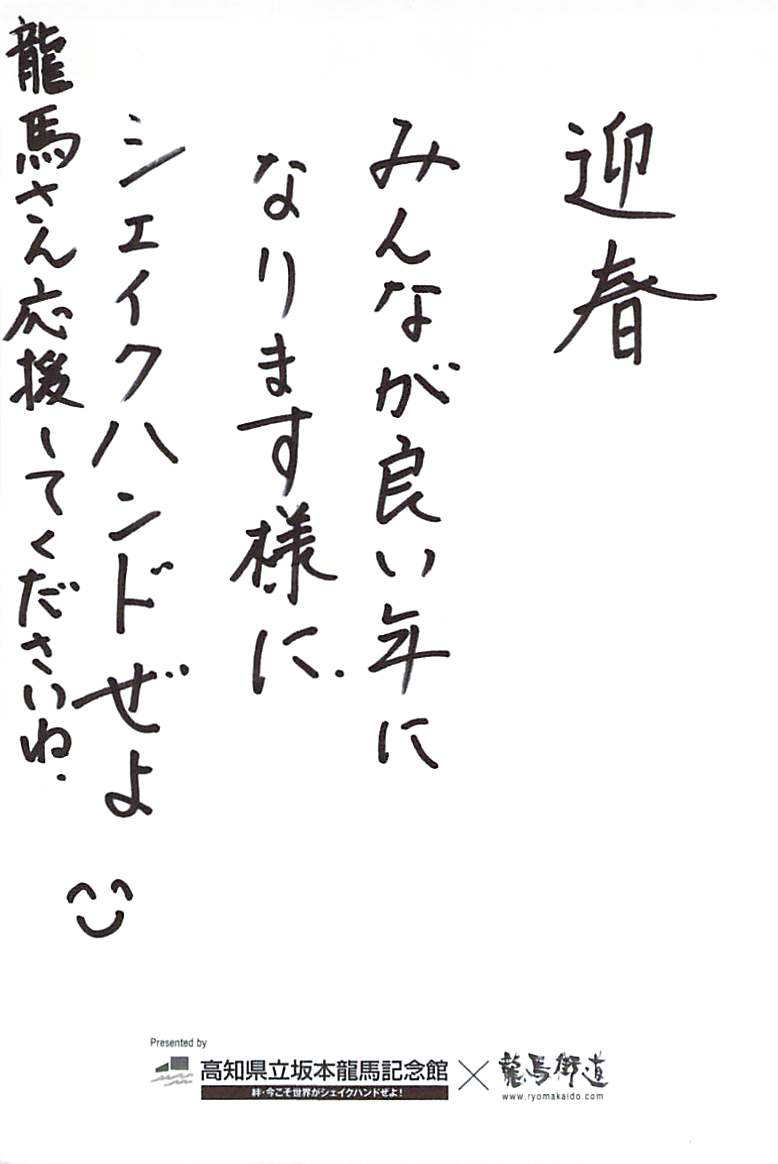 迎春
みんなが良い年に
なります様に.
シェイクハンドぜよ
龍馬さん応援してくださいね.
Presented by
高知県立坂本龍馬記念館 × 龍馬街道
絆・今こそ世界がシェイクハンドぜよ！
www.ryomakaido.com